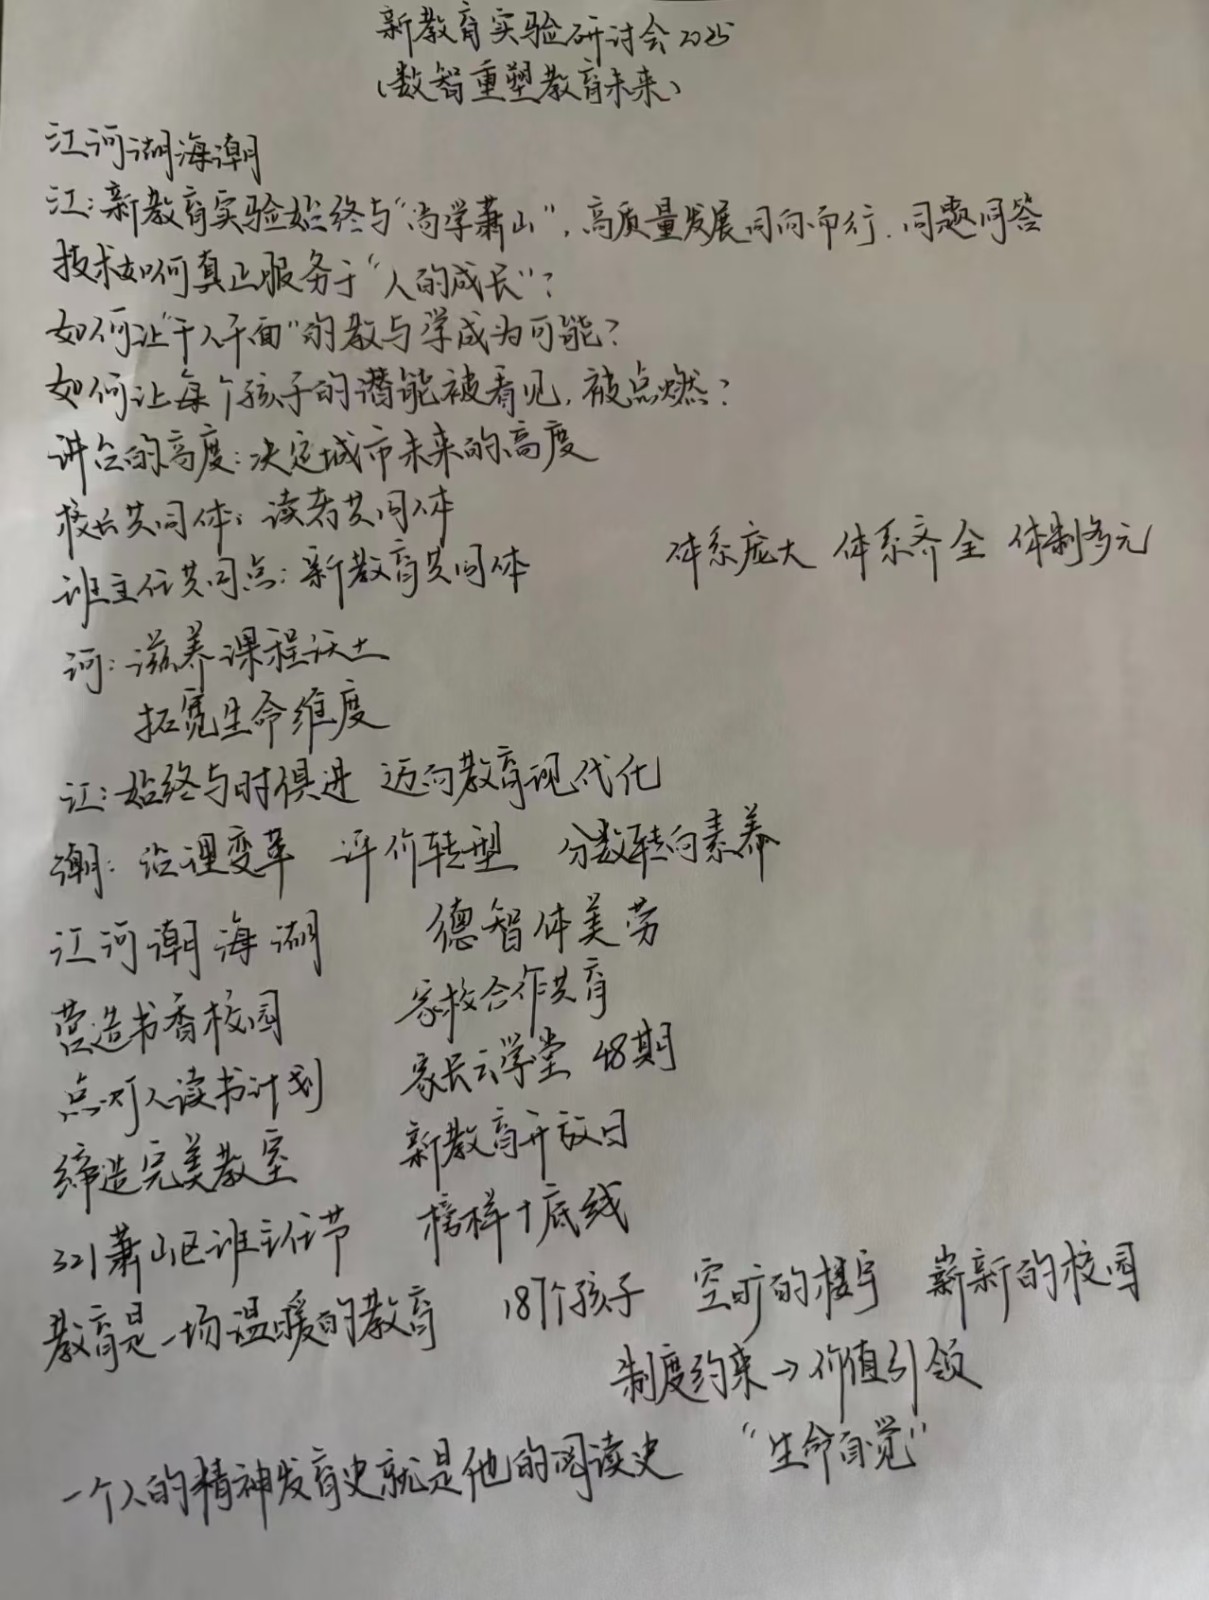 新教育实验研讨会2025
(数智重塑教育未来)
江河湖海潮
江:新教育实验始终与“尚学萧山”,高质量发展同向而行.同题同答
技术如何真正服务于“人的成长”?
如何让“千人千面”的教与学成为可能?
如何让每个孩子的潜能被看见,被点燃?
讲台的高度:决定城市未来的高度
校长共同体:读者共同体
班主任共同点:新教育共同体 体系庞大 体系齐全 体制多元
河:滋养课程沃土
拓宽生命维度
江:始终与时俱进 迈向教育现代化
潮:治理变革 评价转型 分数转向素养
江河潮海湖 德智体美劳
营造书香校园 家校合作共育
点灯人读书计划 家长云学堂 48期
缔造完美教室 新教育开放日
321萧山区班主任节 榜样+底线
教育是一场温暖的教育 187个孩子 空旷的楼宇 崭新的校园
制度约束→价值引领
一个人的精神发育史就是他的阅读史 “生命自觉”